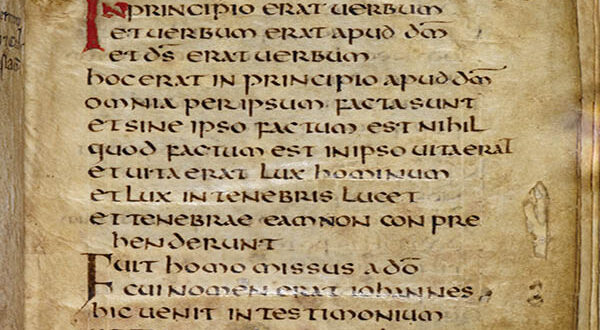 IN PRINCIPIO ERAT UERBUM
ET UERBUM ERAT APUD DM̄
ET DS̄ ERAT UERBUM
HOC ERAT IN PRINCIPIO APUD DM̄
OMNIA PER IPSUM FACTA SUNT
ET SINE IPSO FACTUM EST NIHIL
QUOD FACTUM EST IN IPSO UITA ERAT
ET UITA ERAT LUX HOMINUM
ET LUX IN TENEBRIS LUCET
ET TENEBRAE EAM NON CON PRE
HENDERUNT
FUIT HOMO MISSUS A DŌ
CUI NOMEN ERAT IOHANNES
HIC UENIT IN TESTIMONIUM